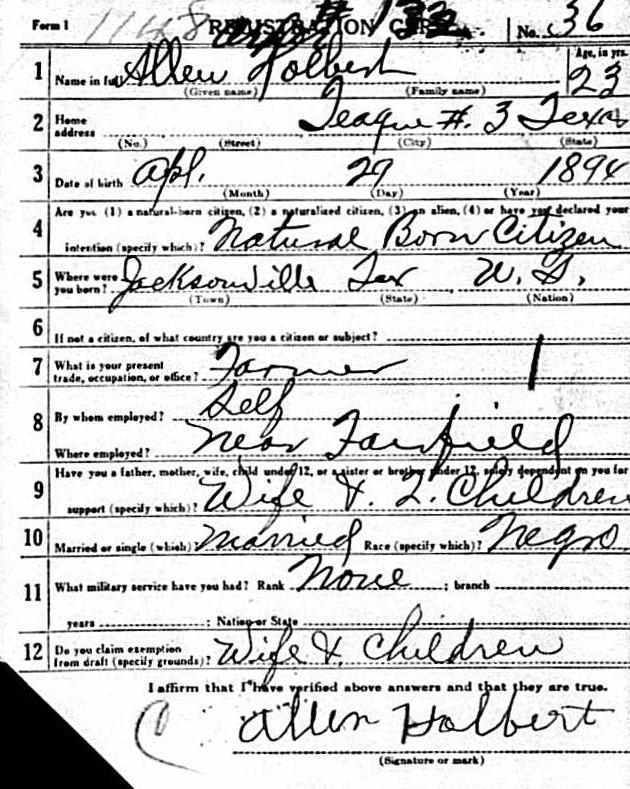 Form 1 1148 REGISTRATION CARD No. 36
1 Name in full Allen Holbert Age, in yrs. 23
(Given name) (Family name)
2 Home address Teague #. 3 Texas
(No.) (Street) (City) (State)
3 Date of birth Apl. 29 1894
(Month) (Day) (Year)
4 Are you (1) a natural-born citizen, (2) a naturalized citizen, (3) an alien, (4) or have you declared your
intention (specify which)? Natural Born Citizen
5 Where were you born? Jacksonville Tex U. S.
(Town) (State) (Nation)
6 If not a citizen, of what country are you a citizen or subject?
7 What is your present trade, occupation, or office? Farmer 1
8 By whom employed? Self
Where employed? Near Fairfield
9 Have you a father, mother, wife, child under 12, or a sister or brother under 12, solely dependent on you for
support (specify which)? Wife &. 2. Children
10 Married or single (which)? Married Race (specify which)? Negro
11 What military service have you had? Rank None ; branch
years ; Nation or State
12 Do you claim exemption from draft (specify grounds)? Wife &. Children
I affirm that I have verified above answers and that they are true.
Allen Holbert
(Signature or mark)